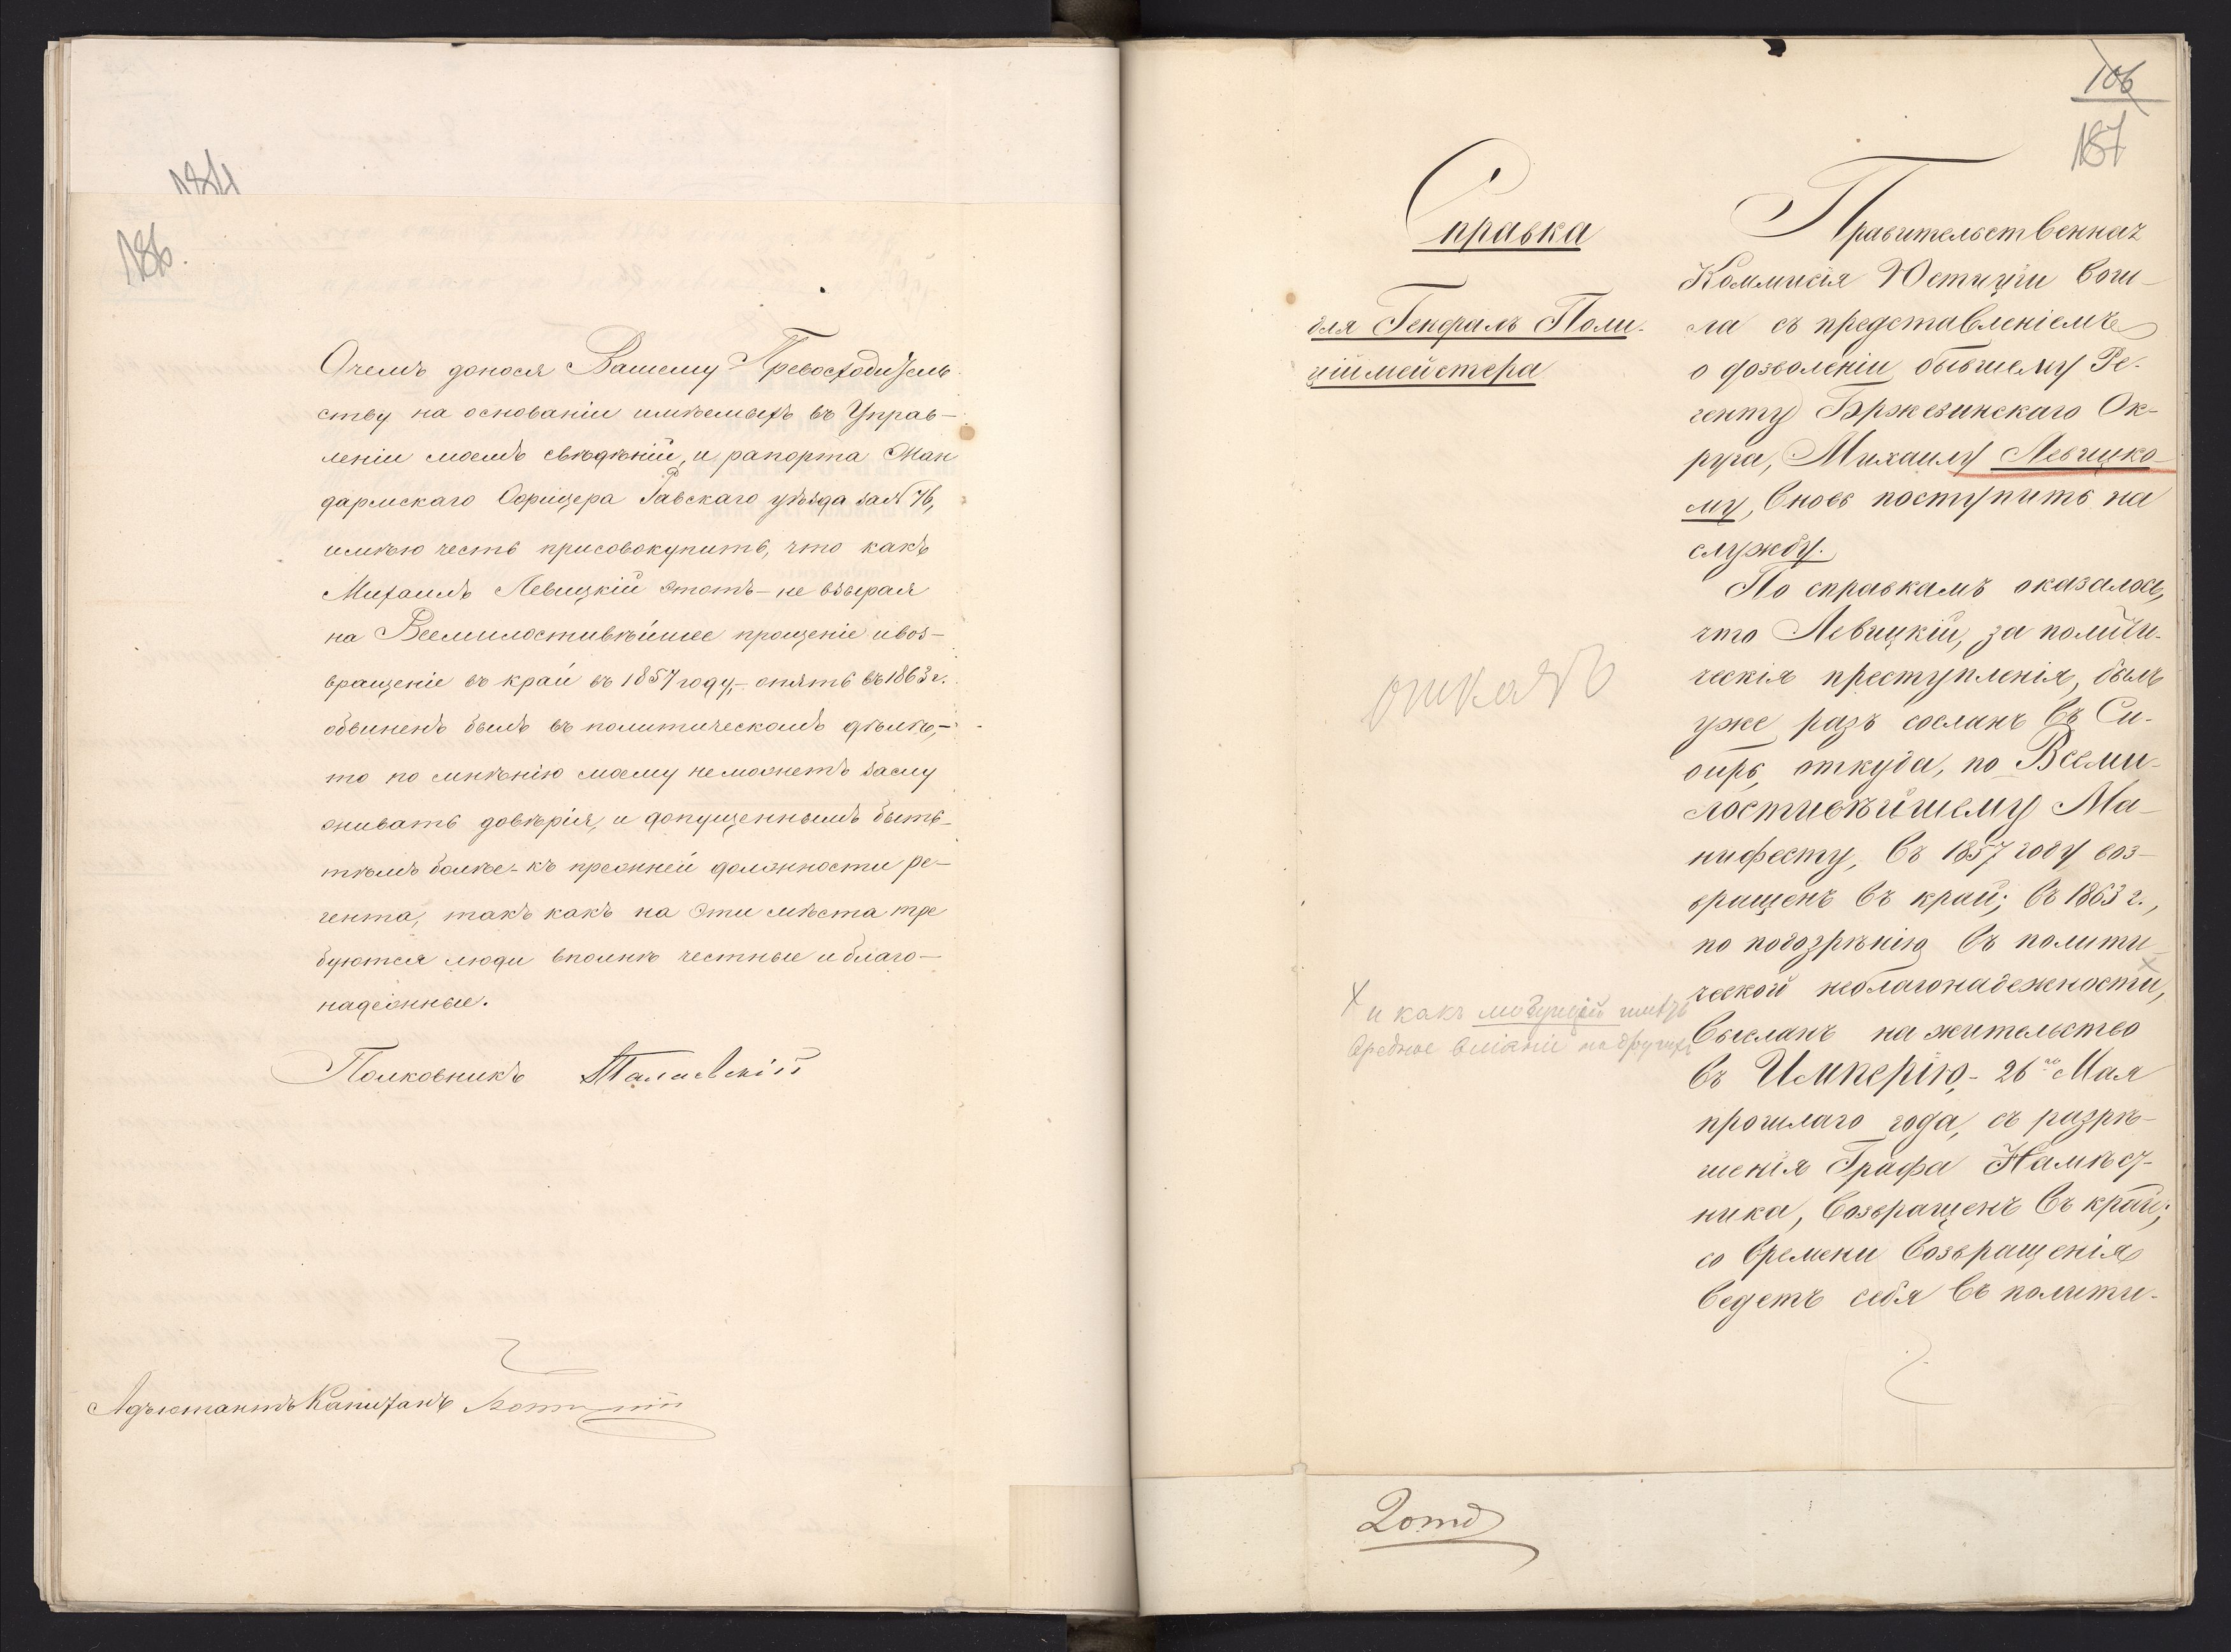 186.
Очемъ донося Вашему Превосходитель
ству на основаніи имѣемыхъ въ Управ-
леніи моемъ свѣдѣній, и рапорта Жан
дармскаго Офицера Равскаго уѣзда за № 76,
имѣю честь присовокупить, что какъ
Михаилъ Левицкій этотъ - не взирая
на Всемилостивѣйшее прощеніе и воз-
вращеніе въ край въ 1857 году, - опять въ 1863 г.
обвиненъ былъ въ политическомъ дѣлѣ, -
то по мнѣнію моему не можетъ заслу
живать довѣрія, и допущеннымъ быть -
тѣмъ болѣе - къ прежней должности ре-
гента, такъ какъ на эти мѣста тре
буются люди вполнѣ честные и благо-
надежные.
Полковникъ
Адъютантъ Капитанъ
106
187
Справка
для Генералъ Поли-
ціймейстера
отказъ
х и какъ могущій имѣть
вредное вліяніе на другихъ
Правительственная
Коммисія Юстиціи вош-
ла съ представленіемъ
о дозволеніи бывшему Ре-
генту Бржезинскаго Ок-
руга, Михаилу Левицко-
му, вновь поступить на
службу.
По справкамъ оказалось,
что Левицкій, за полити-
ческія преступленія, былъ
уже разъ сосланъ въ Си-
бирь, откуда, по Всеми-
лостивѣйшему Ма-
нифесту, въ 1857 году воз-
вращенъ въ край; въ 1863 г.,
по подозрѣнію въ полити-
ческой неблагонадежности, х
высланъ на жительство
въ Имперію, - 26го Мая
прошлаго года, съ разрѣ-
шенія Графа Намѣст-
ника, возвращенъ въ край;
со времени возвращенія
ведетъ себя въ полити-
2 отд